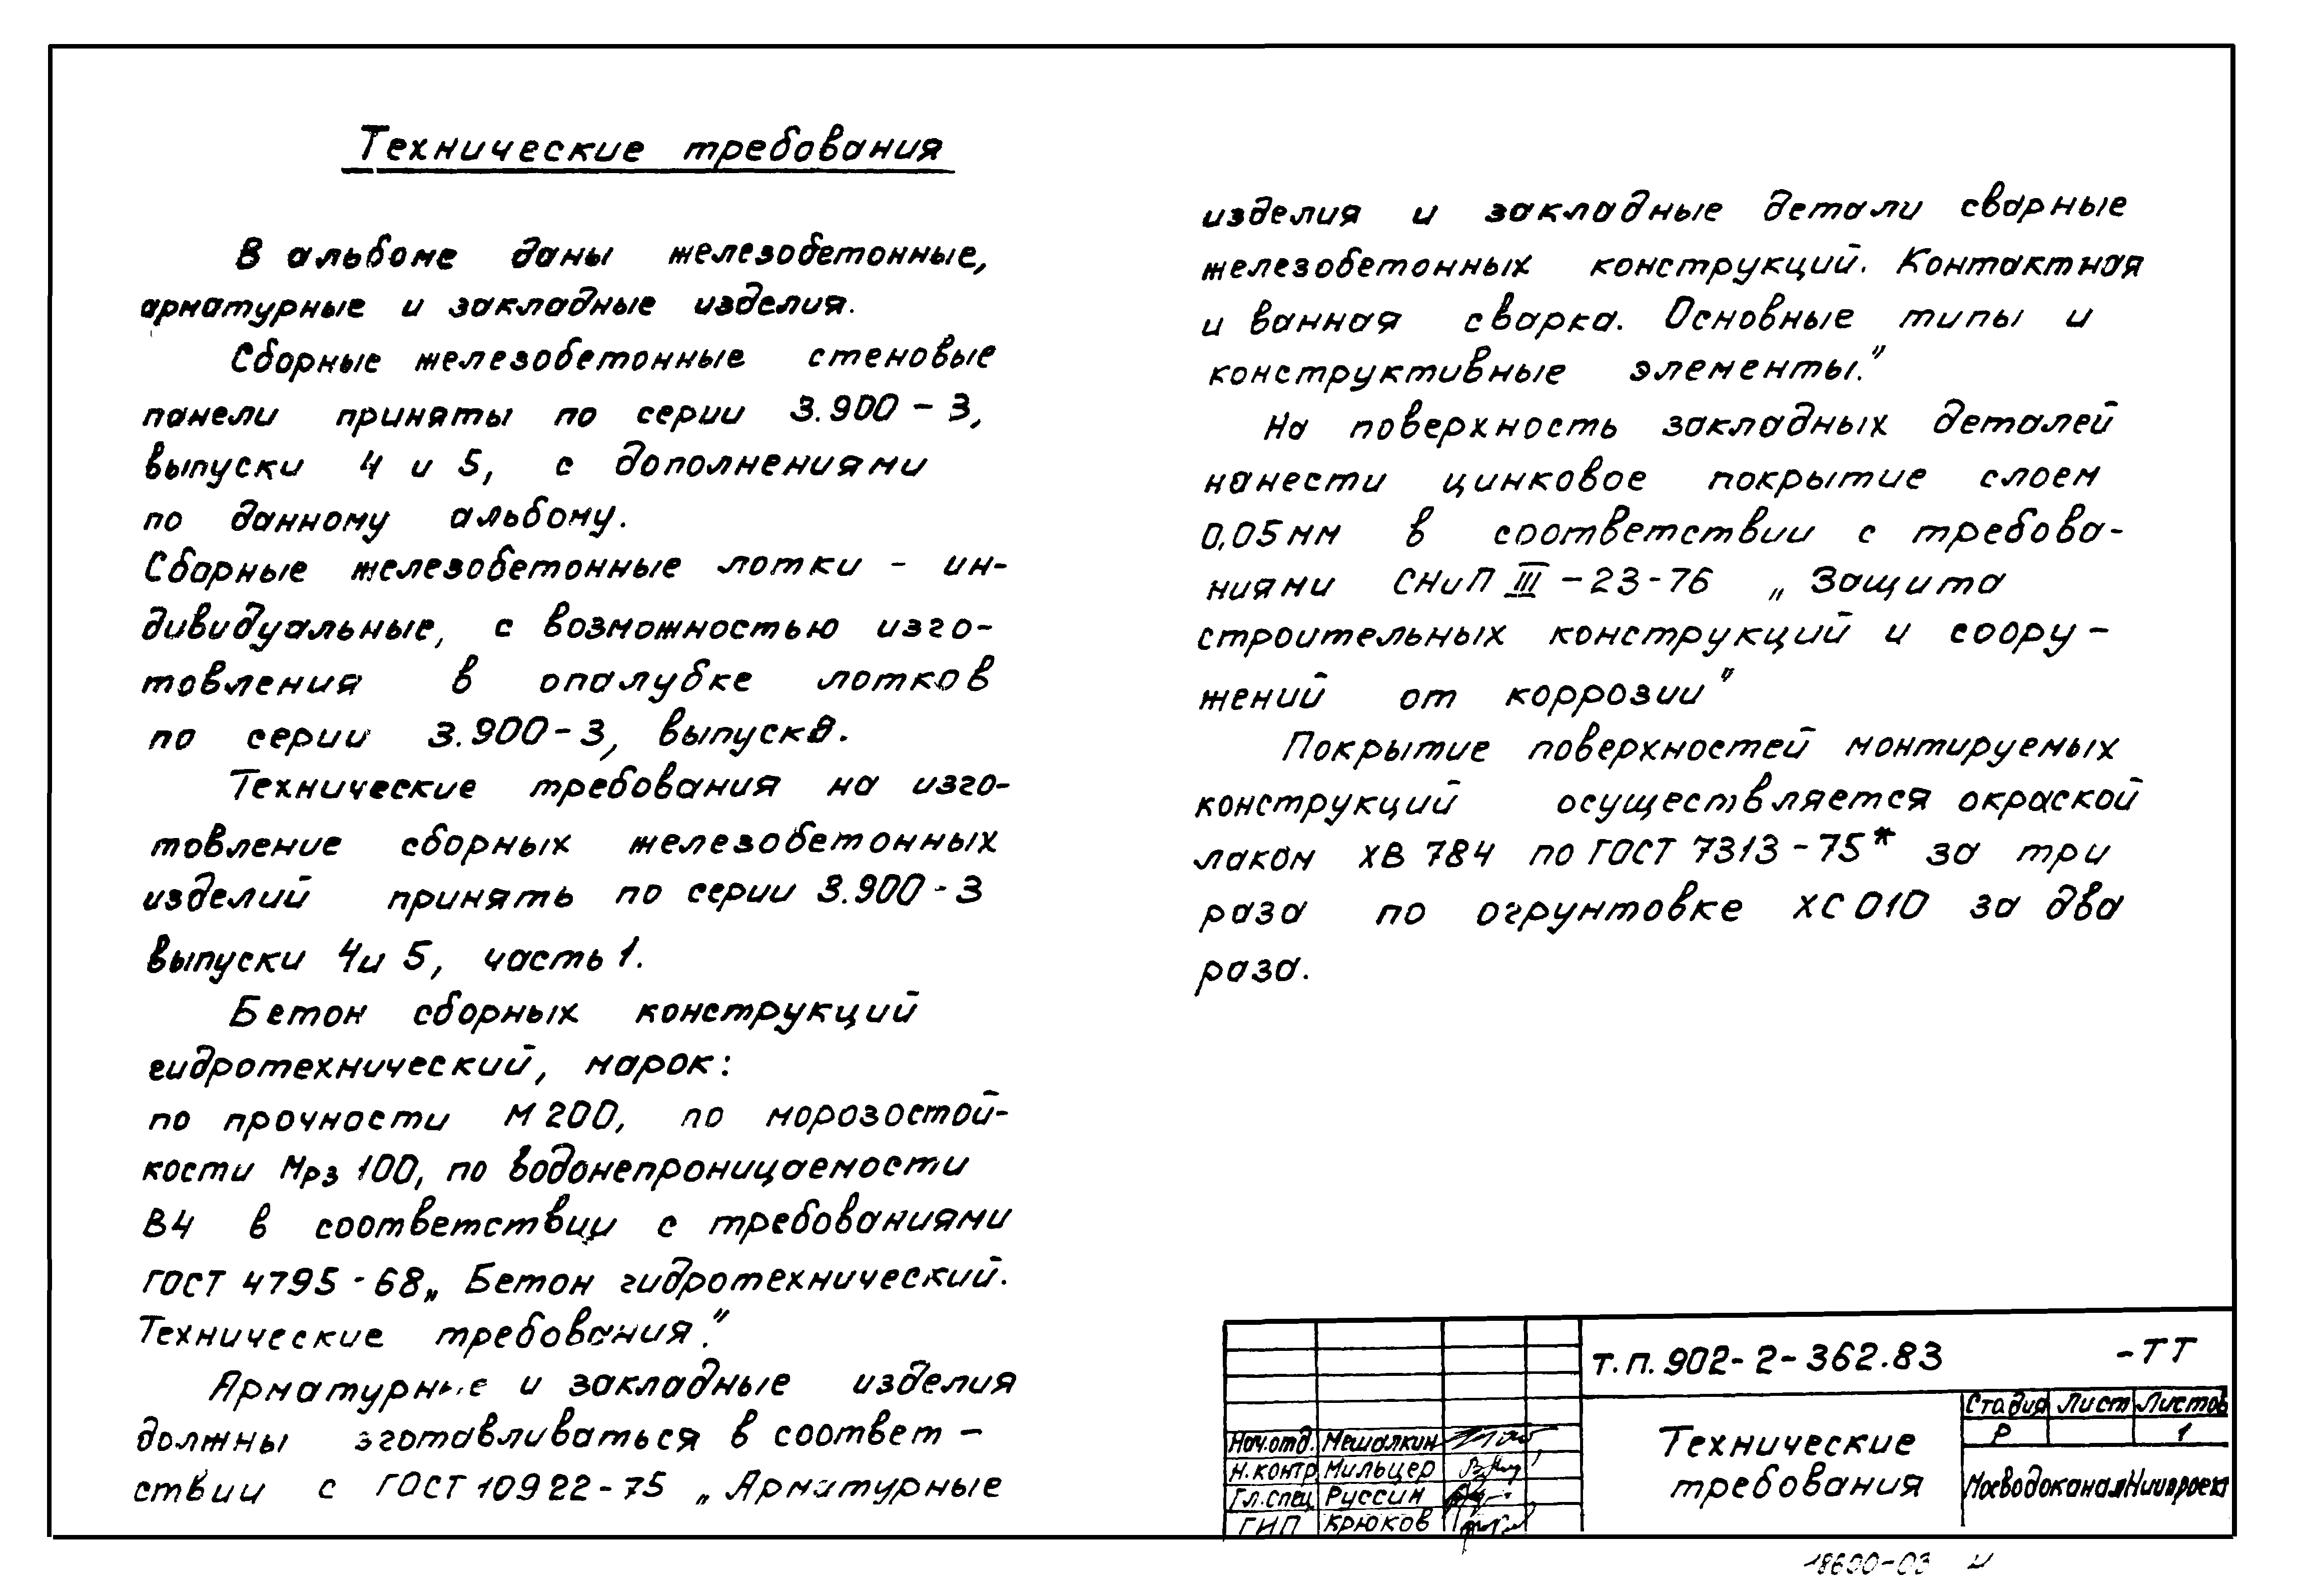 Технические требования
В альбоме даны железобетонные,
арматурные и закладные изделия.
Сборные железобетонные стеновые
панели приняты по серии 3.900-3,
выпуски 4 и 5, с дополнениями
по данному альбому.
Сборные железобетонные лотки - ин-
дивидуальные, с возможностью изго-
товления в опалубке лотков
по серии 3.900-3, выпуск 8.
Технические требования на изго-
товление сборных железобетонных
изделий принять по серии 3.900-3
выпуски 4 и 5, часть 1.
Бетон сборных конструкций
гидротехнический, марок:
по прочности М200, по морозостой-
кости Мрз 100, по водонепроницаемости
В4 в соответствии с требованиями
ГОСТ 4795-68 „Бетон гидротехнический.
Технические требования."
Арматурные и закладные изделия
должны зготавливаться в соответ-
ствии с ГОСТ 10922-75 „Арматурные
изделия и закладные детали сварные
железобетонных конструкций. Контактная
и ванная сварка. Основные типы и
конструктивные элементы."
На поверхность закладных деталей
нанести цинковое покрытие слоем
0,05 мм в соответствии с требова-
ниями СНиП III-23-76 „Защита
строительных конструкций и соору-
жений от коррозии"
Покрытие поверхностей монтируемых
конструкций осуществляется окраской
лаком ХВ 784 по ГОСТ 7313-75* за три
раза по огрунтовке ХС 010 за два
раза.
т.п. 902-2-362.83 -ТТ
Технические
требования
Стадия Лист Листов
Р 1
МосводоканалНиипроект
Нач.отд. Мешалкин
Н.контр Мильцер
Гл.спец. Руссин
ГИП Крюков
18600-03 4